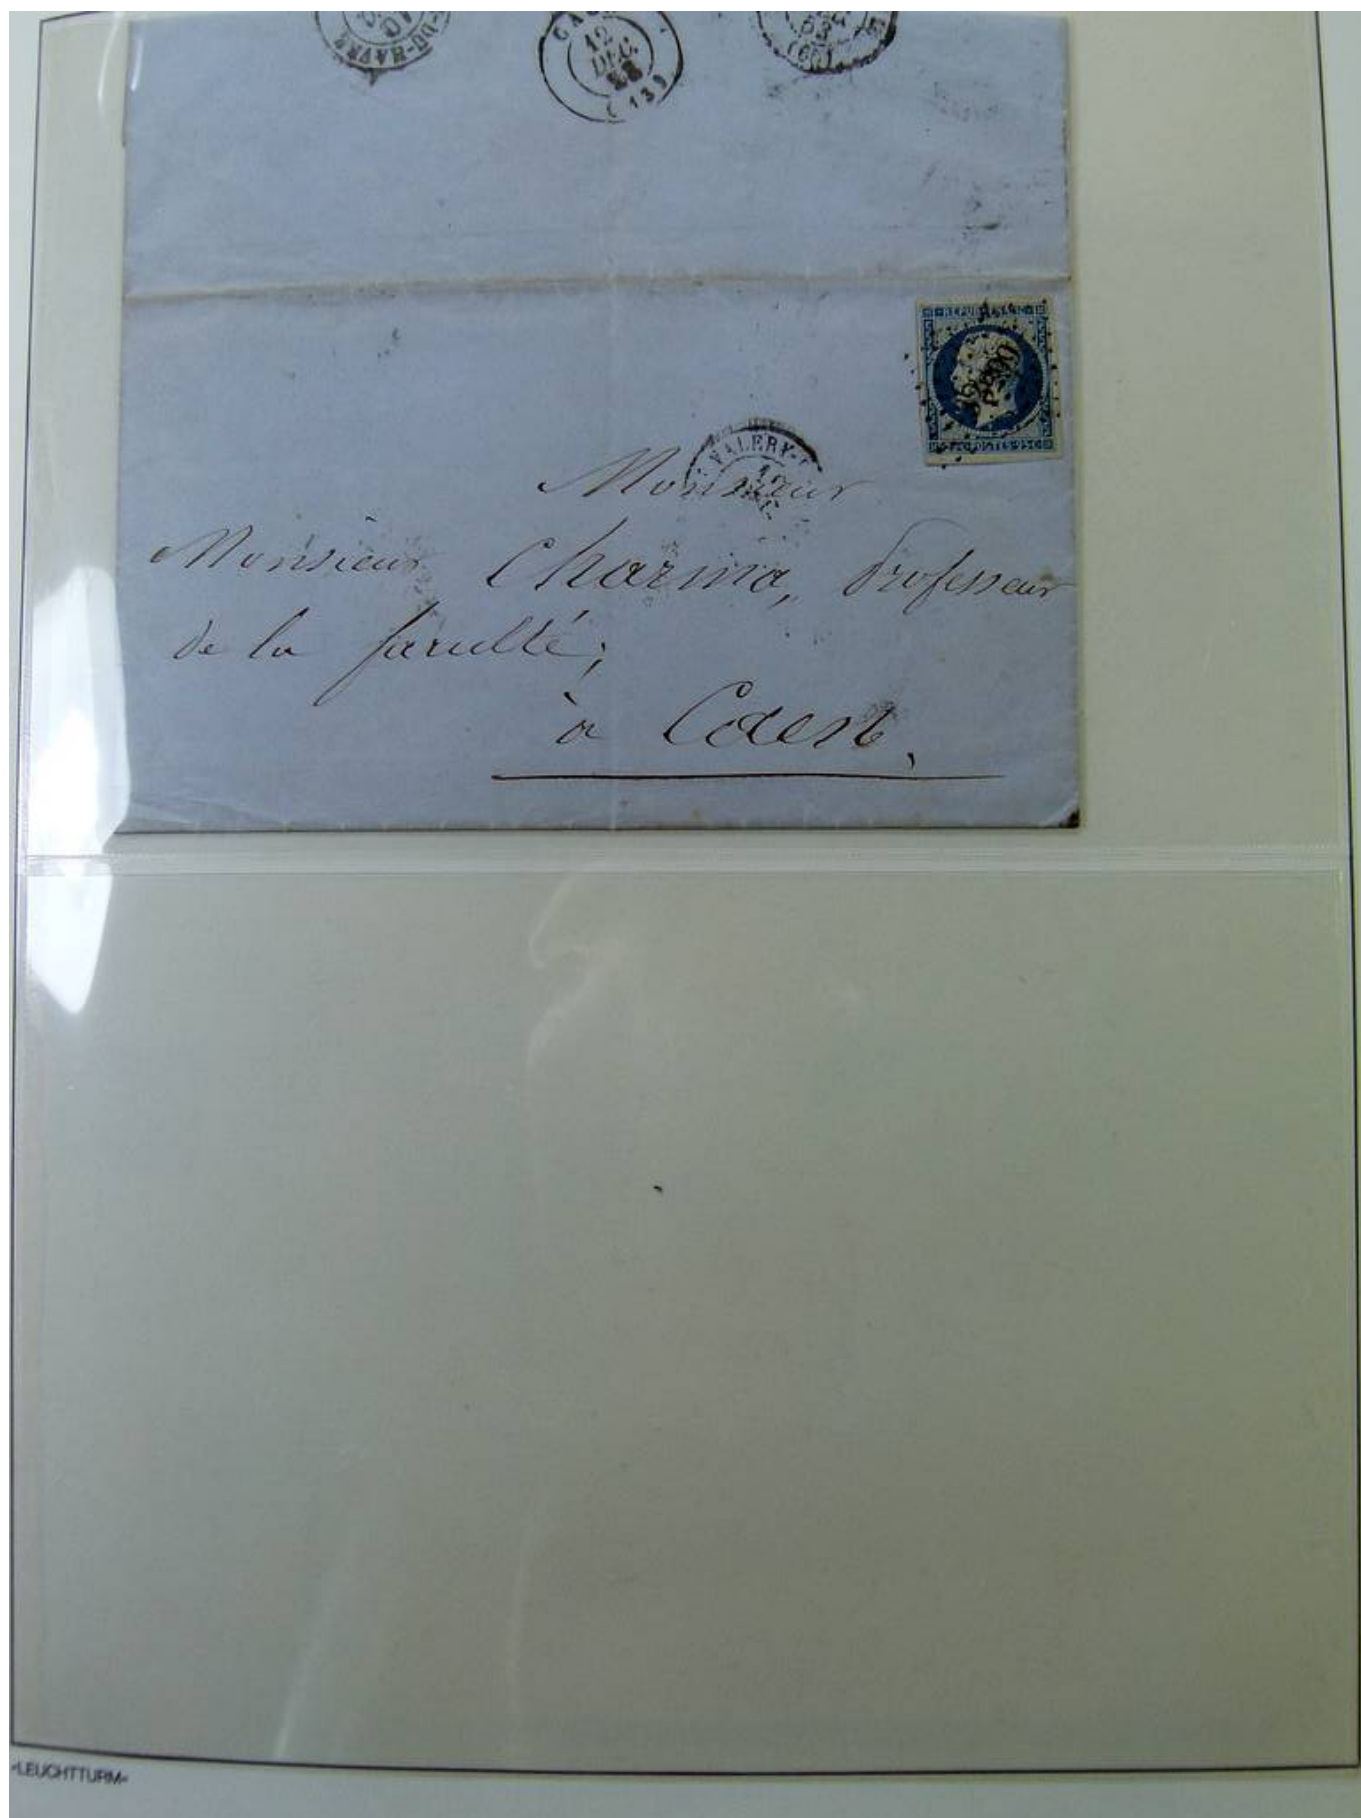 DU-HAVRE
10
CA
12
DEC
(13)
(60)
REPUB FRANC
2890
25c POSTES 25c
VALERY-
Monsieur
Monsieur Charma, Professeur
de la faculté,
à Caen.
»LEUCHTTURM«